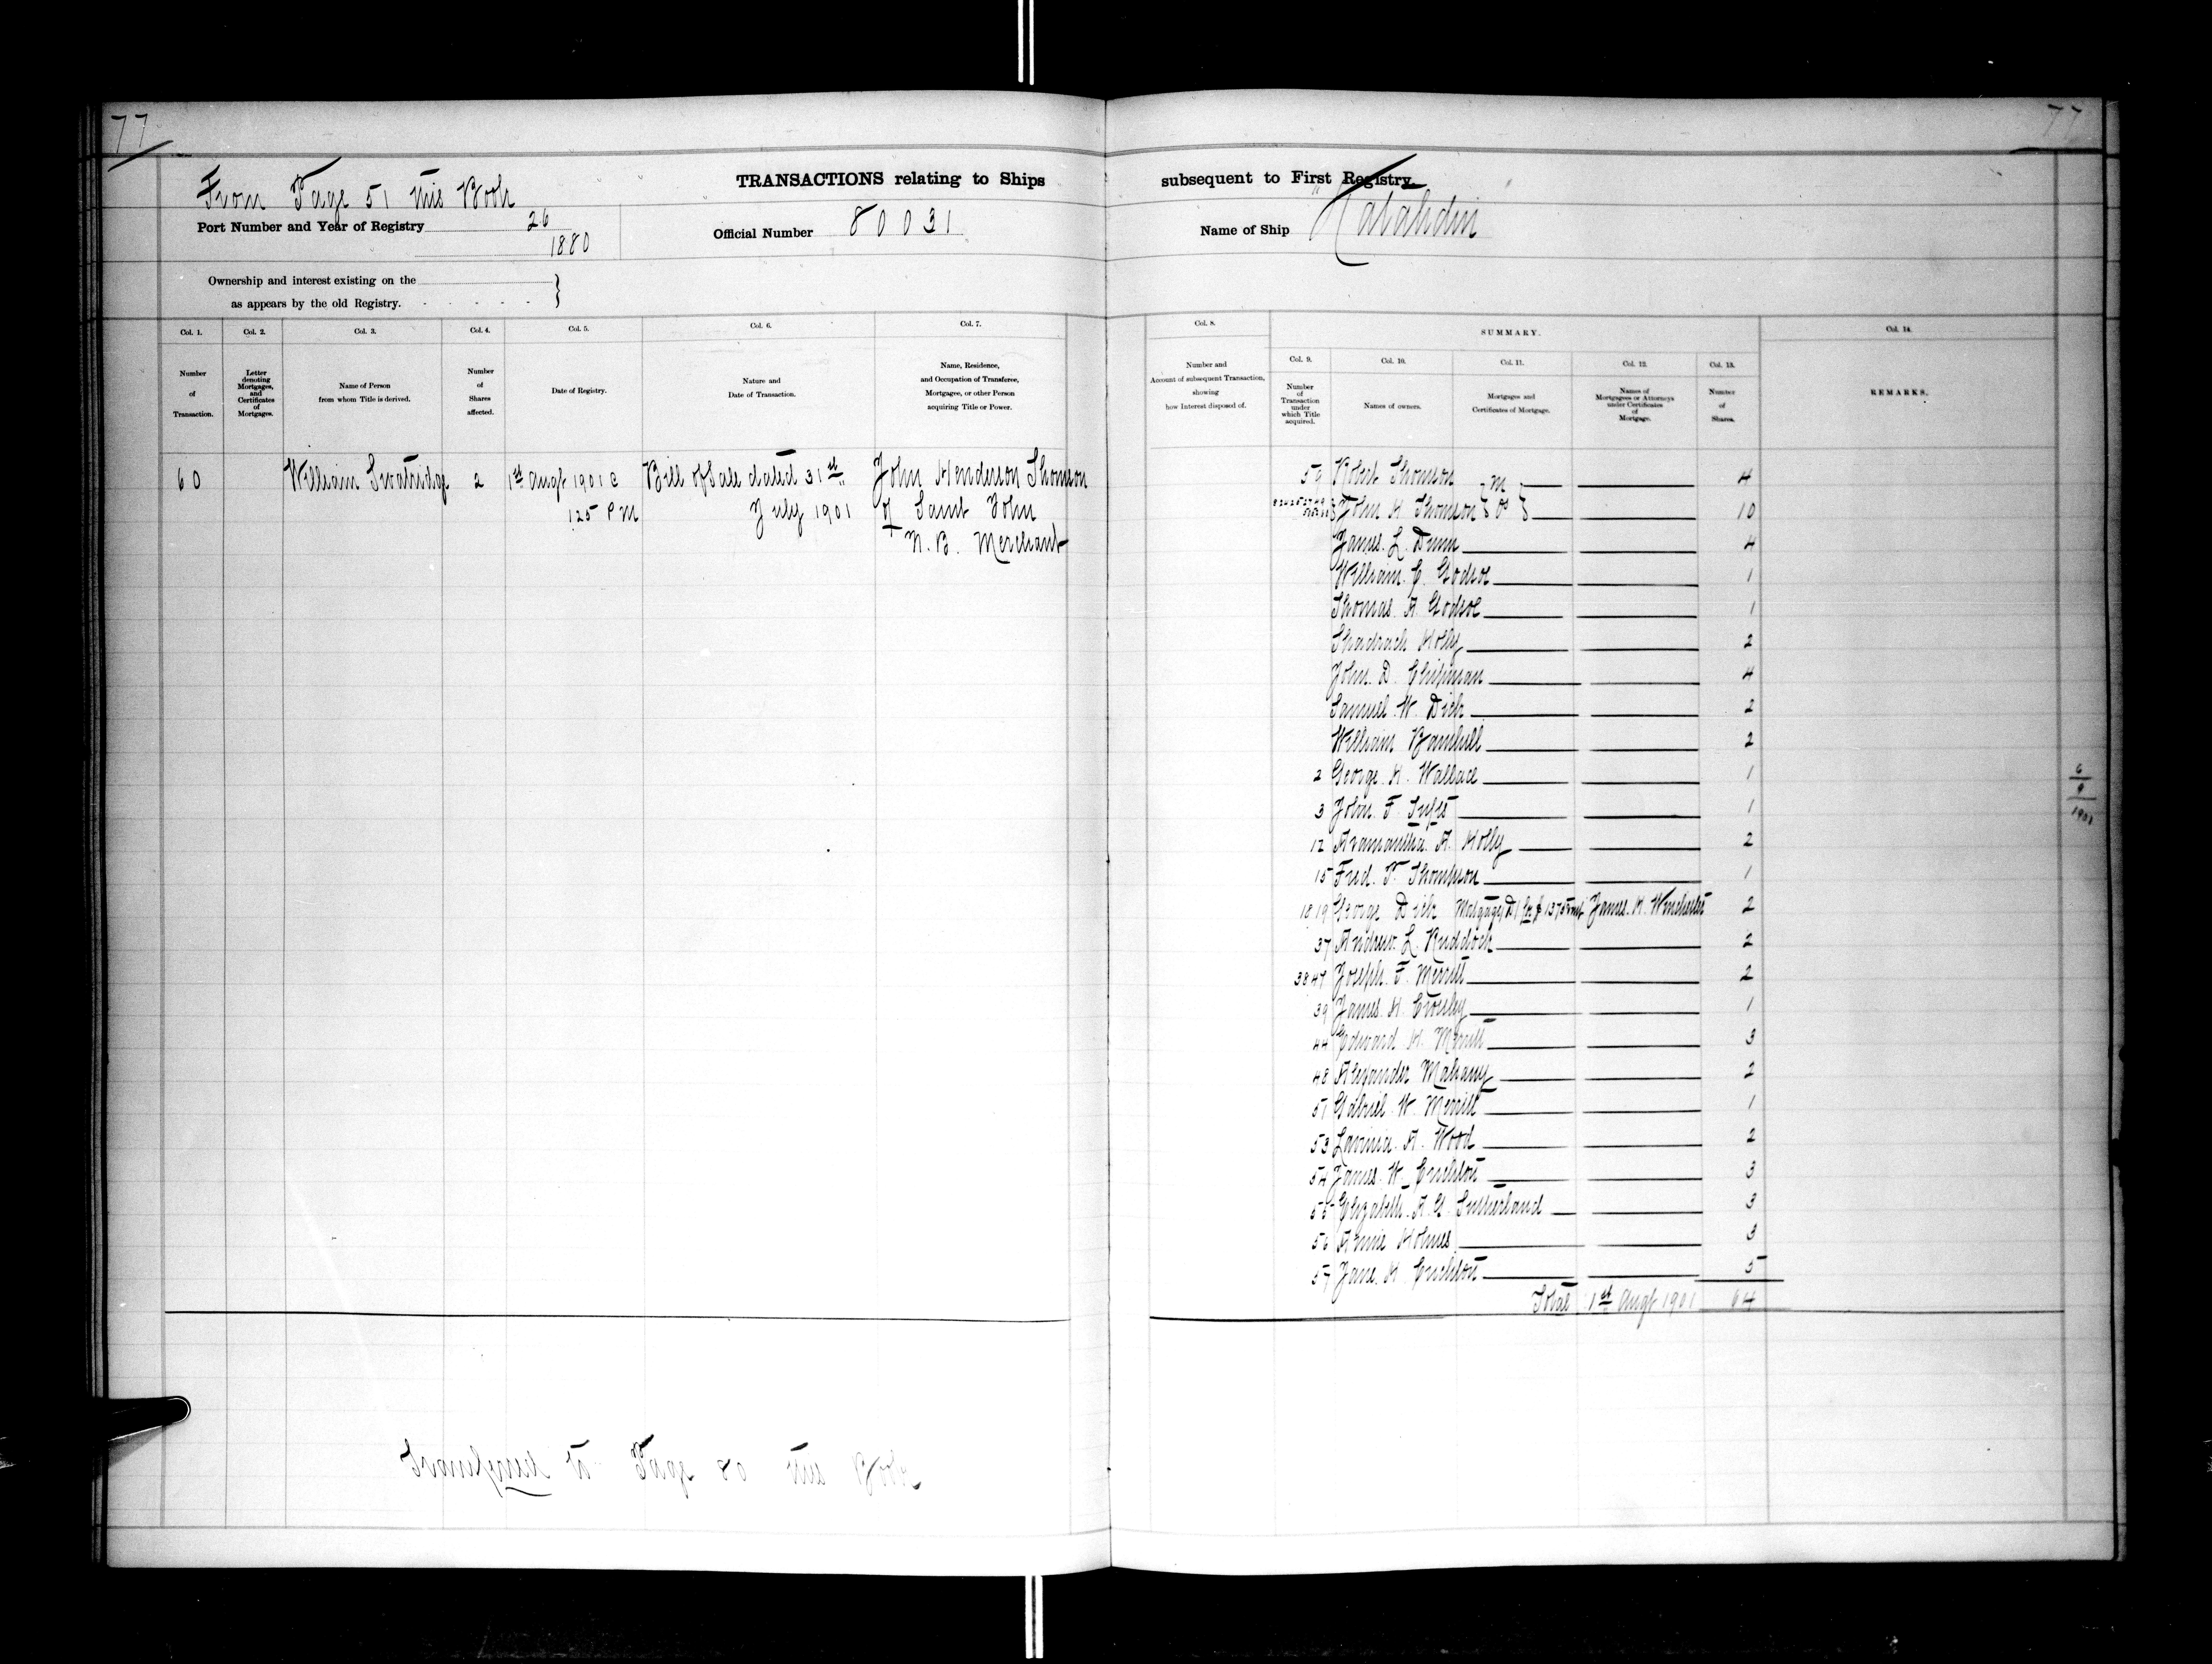 77
77
From Page 51 this Book
TRANSACTIONS relating to Ships subsequent to First Registry.
Port Number and Year of Registry 26
1880
Official Number 80031
Name of Ship "Katahdin"
Ownership and interest existing on the
as appears by the old Registry.
Col. 1. Col. 2. Col. 3. Col. 4. Col. 5. Col. 6. Col. 7.
Number of Transaction.
Letter denoting Mortgages, and Certificates of Mortgages.
Name of Person from whom Title is derived.
Number of Shares affected.
Date of Registry.
Nature and Date of Transaction.
Name, Residence, and Occupation of Transferee, Mortgagee, or other Person acquiring Title or Power.
60 William Swatridge 2 1st Augt 1901 @ Bill of Sale dated 31st John Henderson Thomson
1 25 PM July 1901 of Saint John
N.B. Merchant
Transferred to Page 80 this Book
Col. 8. SUMMARY. Col. 14.
Col. 9. Col. 10. Col. 11. Col. 12. Col. 13.
Number and Account of subsequent Transaction, showing how Interest disposed of.
Number of Transaction under which Title acquired.
Names of owners.
Mortgages and Certificates of Mortgage.
Names of Mortgagees or Attorneys under Certificates of Mortgage.
Number of Shares.
REMARKS.
59 Robert Thomson M 4
John H Thomson 10
James L. Dunn 4
William C. Godsoe 1
Thomas A. Godsoe 1
Shadrach Holly 2
John D. Chipman 4
Samuel W. Dick 2
William Barnhill 2
2 George H. Wallace 1
3 John F. 1
12 Aramantha A. Holly 2
15 Fred. P. Thompson 1
18 19 George Dick Mortgage D for $ 1375 James H. Winchester 2
37 Andrew L. Ruddock 2
38 47 Joseph F. Merritt 2
39 James H. Crosley 1
44 Edward H. Merritt 3
48 Alexander Mahany 2
51 Gabriel W. Merritt 1
53 Lavinia A. Wood 2
54 James W. Crichton 3
55 Elizabeth A. G. Sutherland 3
56 Annie Holmes 3
57 Jane H Crichton 5
Total 1st Augt 1901 64
6
9
1901